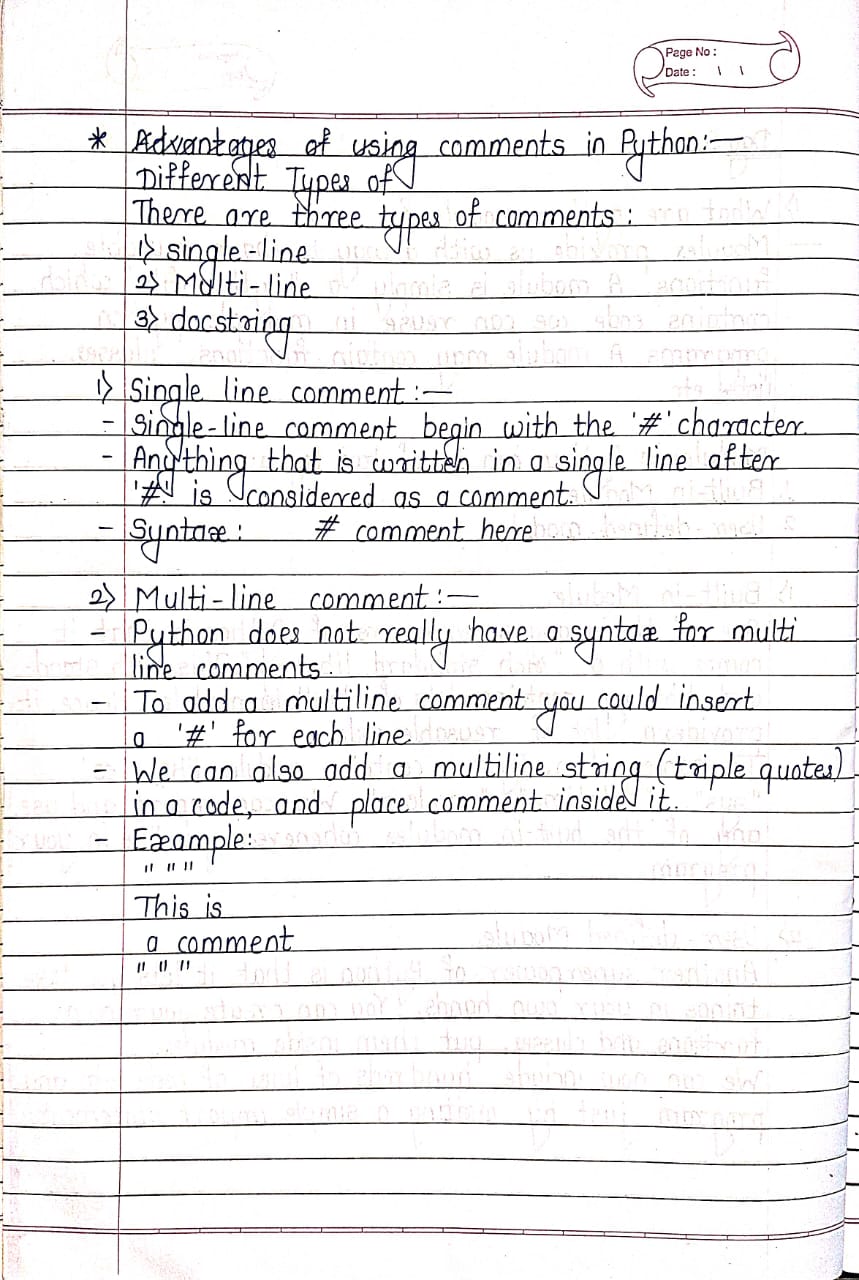 Page No :
Date : \ \
* Advantages of using comments in Python:—
Different Types of
There are three types of comments :
1) single-line
2) Multi-line
3) docstring
1) Single line comment :—
- Single-line comment begin with the '#' character.
- Anything that is written in a single line after
'#' is considered as a comment.
- Syntax : # comment here
2) Multi-line comment :—
- Python does not really have a syntax for multi
line comments.
- To add a multiline comment you could insert
a '#' for each line
- We can also add a multiline string (triple quotes)
in a code, and place comment inside it.
- Example:
" " "
This is
a comment
" " "